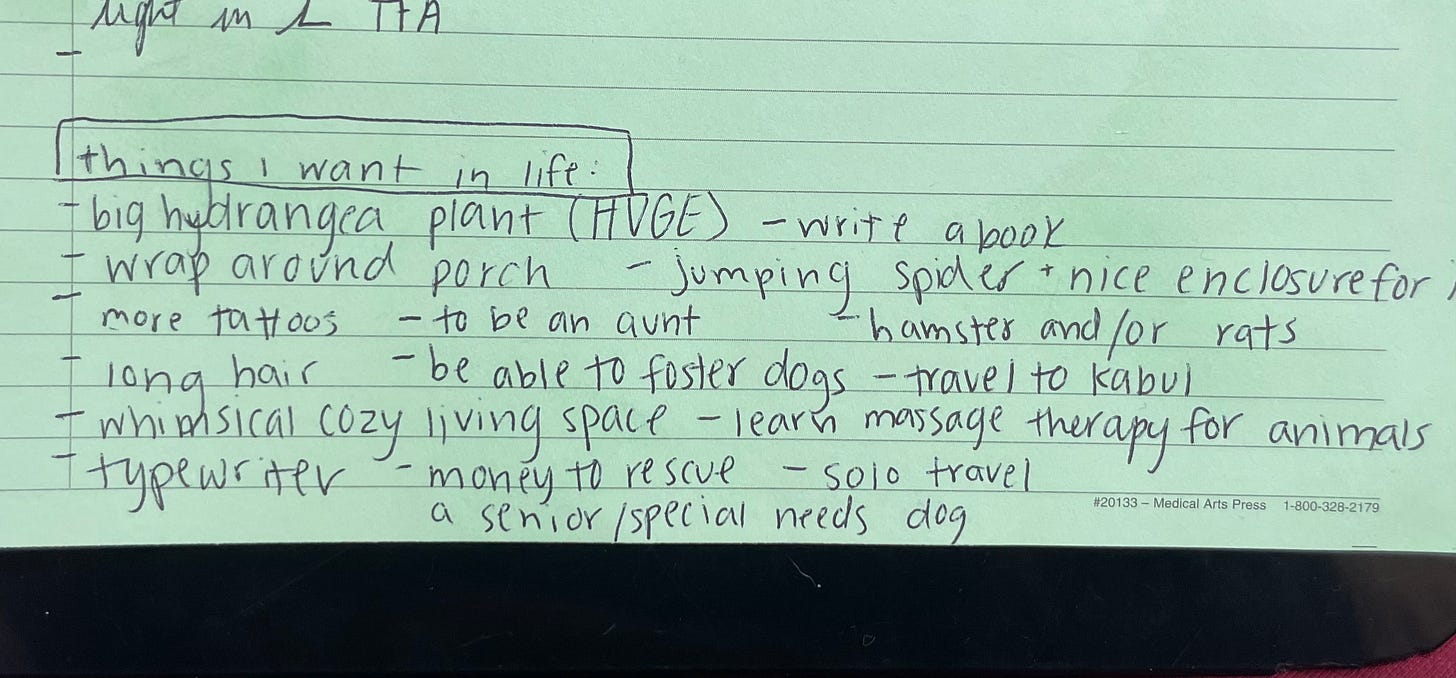 light in L TFA
-
things i want in life:
- big hydrangea plant (HUGE) - write a book
- wrap around porch - jumping spider + nice enclosure for
- more tattoos - to be an aunt - hamster and/or rats
- long hair - be able to foster dogs - travel to Kabul
- whimsical cozy living space - learn massage therapy for animals
- typewriter - money to rescue - solo travel
a senior/special needs dog
#20133 – Medical Arts Press 1-800-328-2179